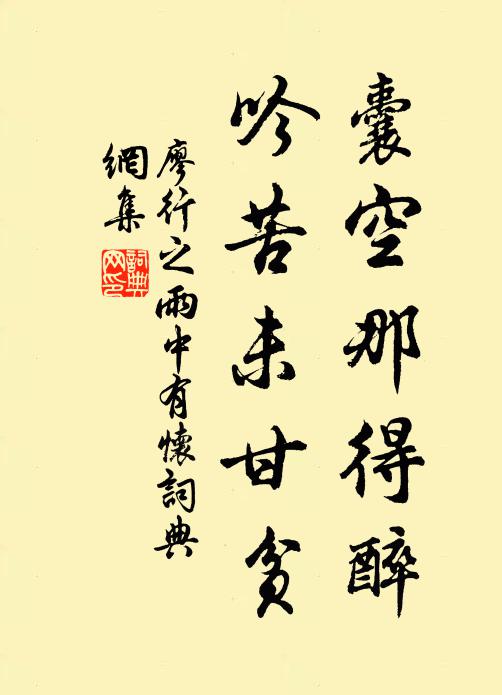 囊空那得醉
吟苦未甘貧
廖行之雨中有懷詞典
網集
詞典
网印